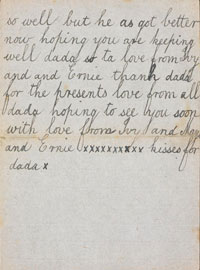 so well but he as got better
now hoping you are keeping
well dada so ta love from Ivy
and and Ernie thank dada
for the presents love from all
dada hoping to see you soon
with love from Ivy and May
and Ernie xxxxxxxxxx kisses for
dada x